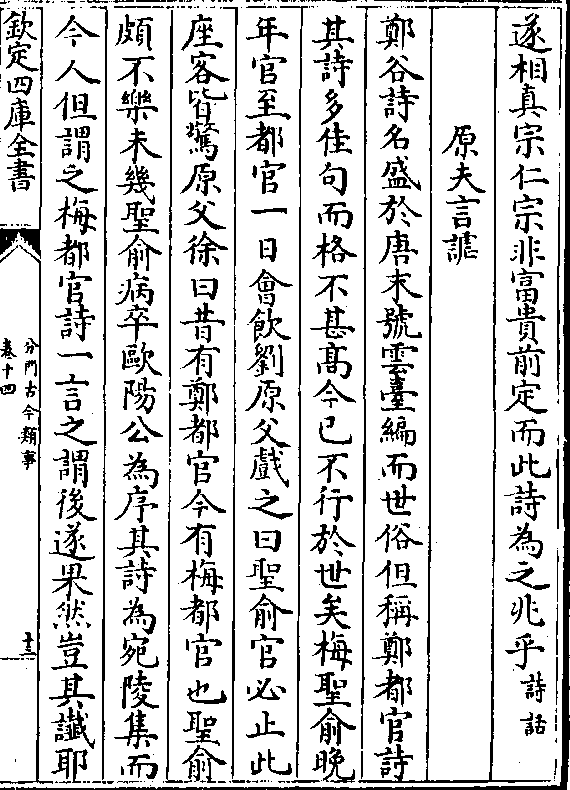 遂相真宗仁宗非富貴前定而此詩為之兆乎詩話
原夫言謔
鄭谷詩名盛於唐末號雲臺編而世俗但稱鄭都官詩
其詩多佳句而格不甚髙今已不行於世矣梅聖俞晩
年官至都官一日會飲劉原父戯之曰聖俞官必止此
座客皆驚原父徐曰昔有鄭都官今有梅都官也聖俞
頗不樂未幾聖俞病卒歐陽公為序其詩為宛陵集而
今人但謂之梅都官詩一言之謂後遂果然豈其讖耶
欽定四庫全書
分門古今類事
卷十四
十三